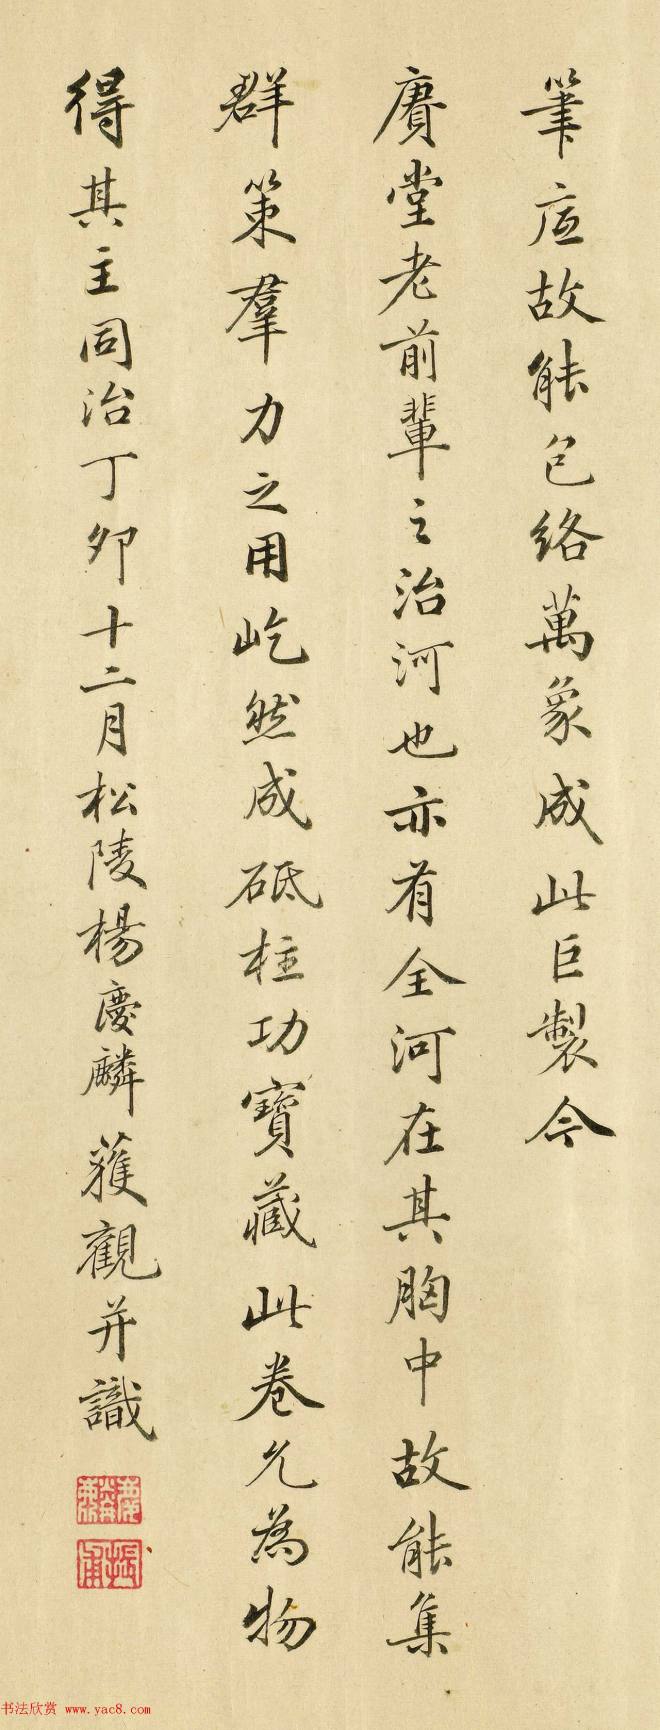 筆应故能包络萬象成此巨製今
賡堂老前輩之治河也亦有全河在其胸中故能集
群策羣力之用屹然成砥柱功寶藏此卷允為物
得其主同治丁卯十二月松陵楊慶麟獲觀并識
慶麟
振甫
书法欣赏 www.yac8.com